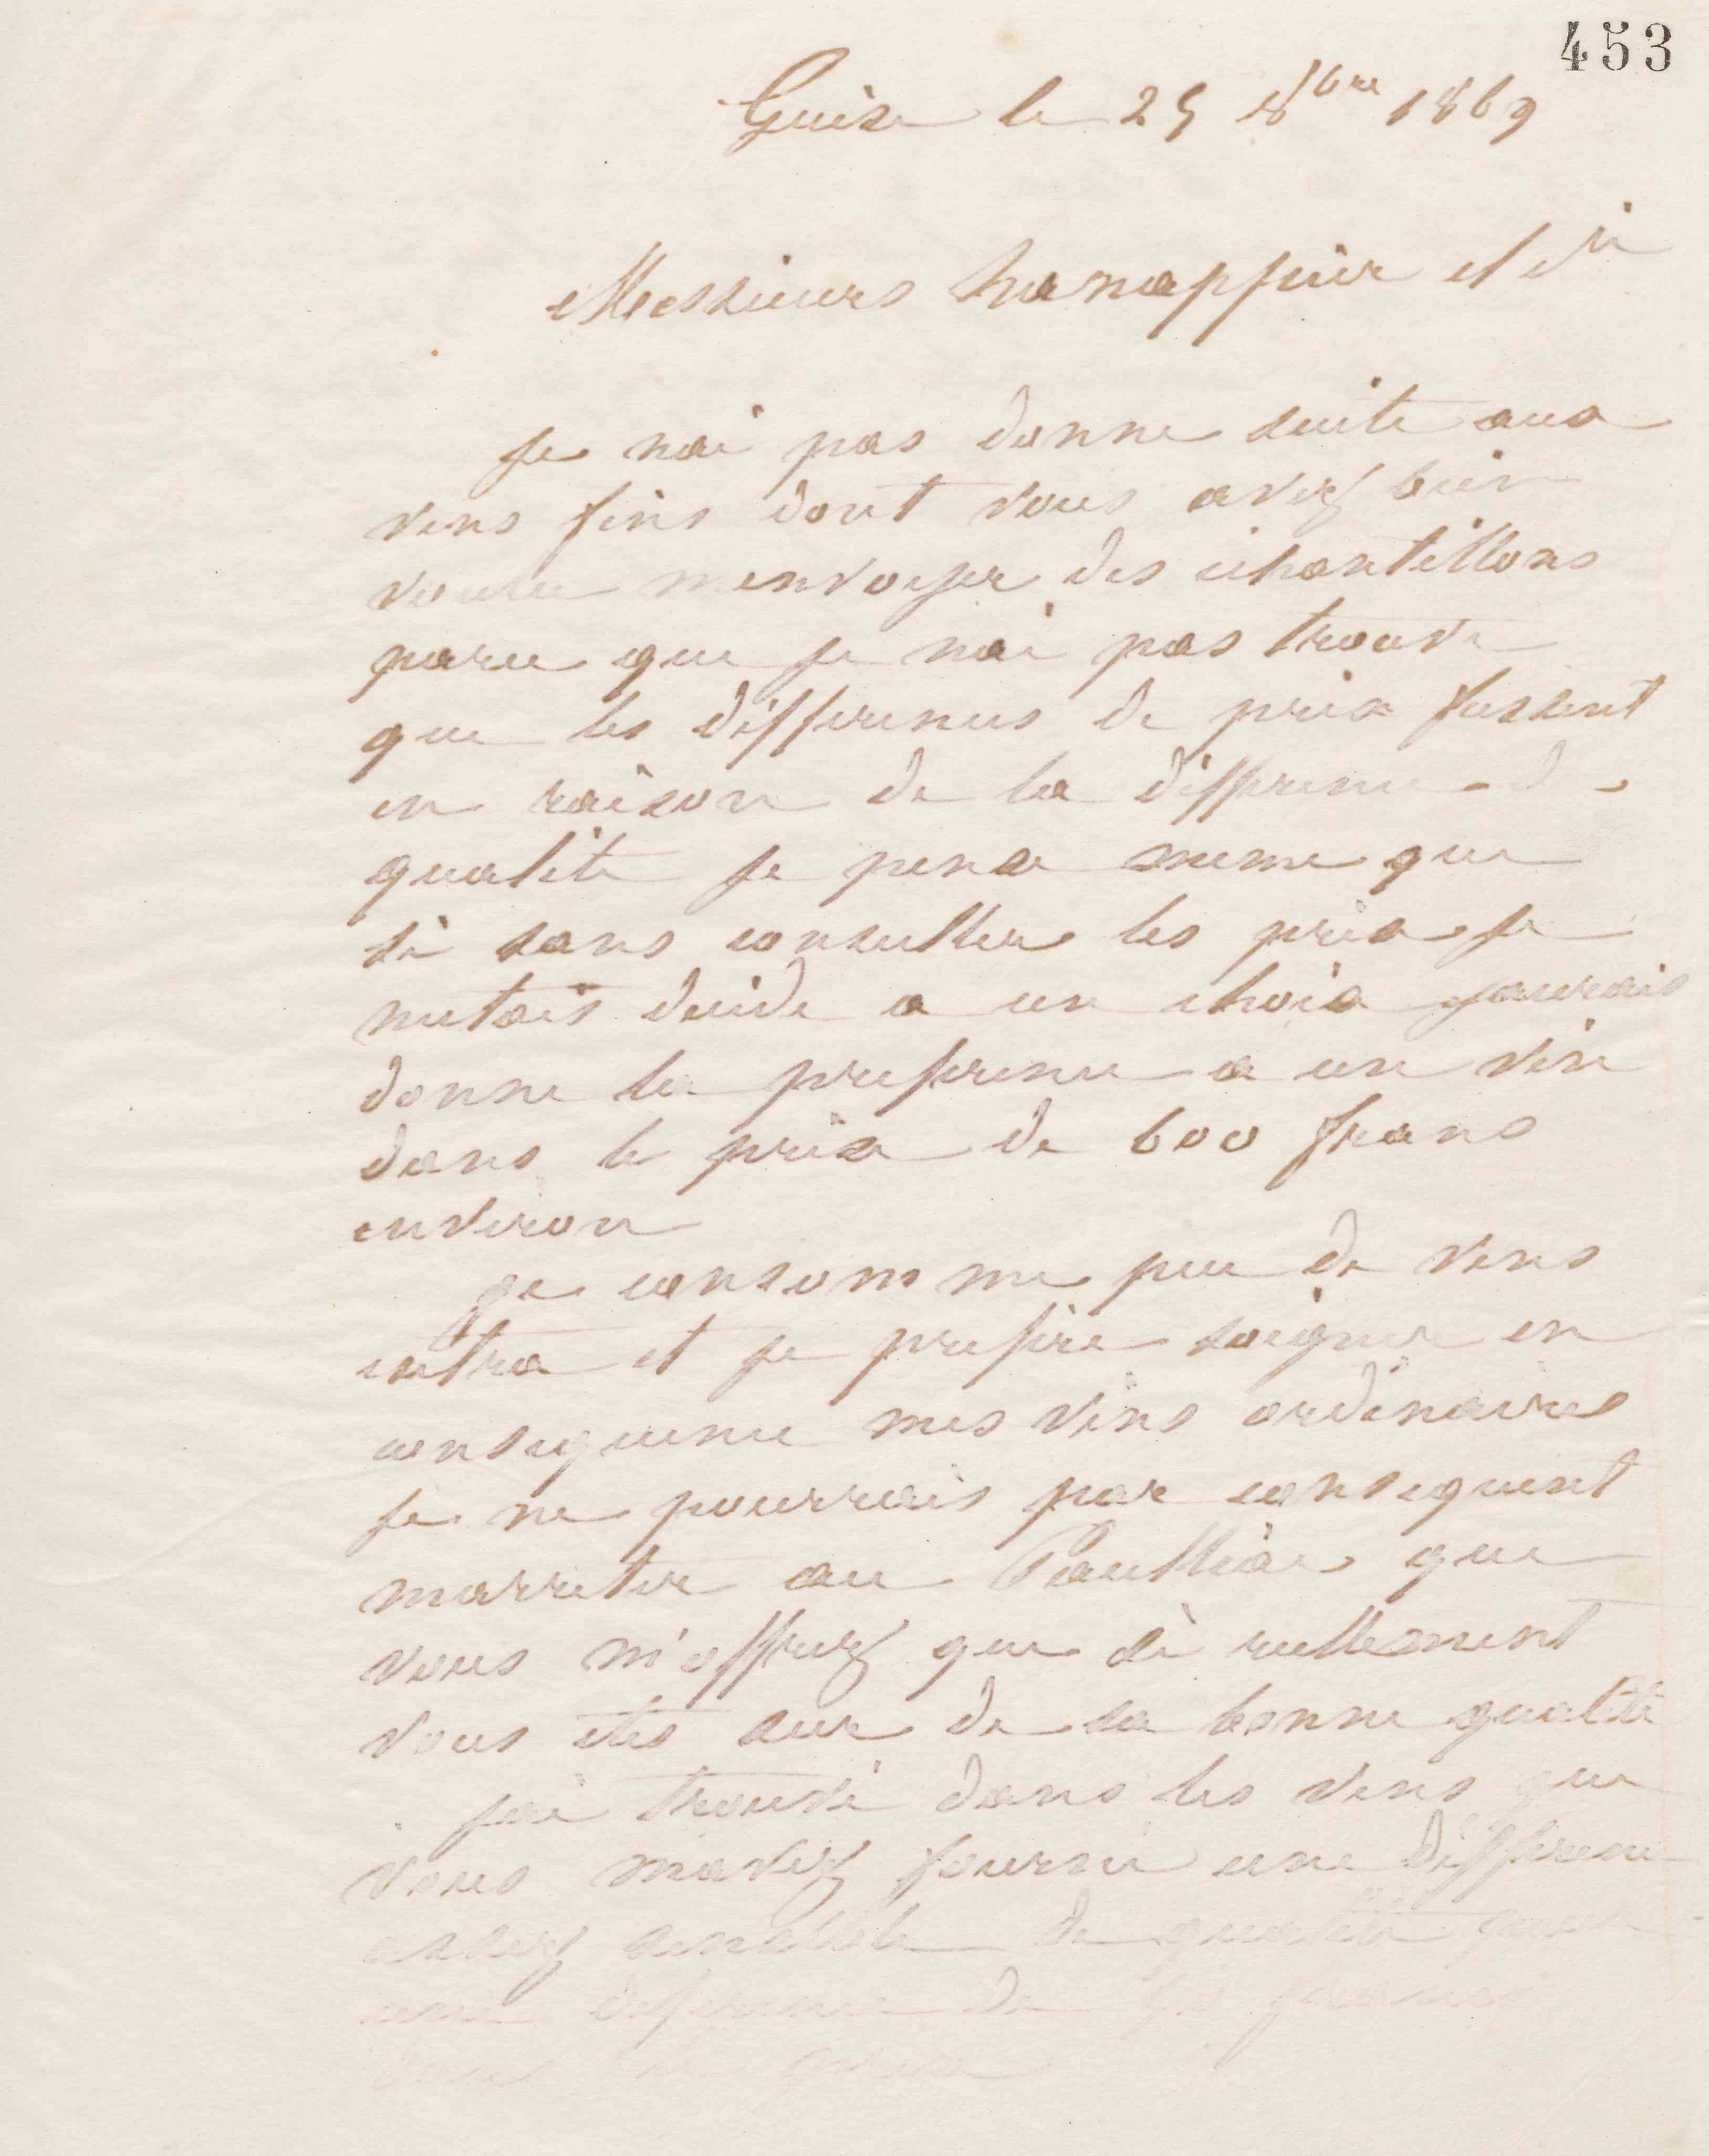 453
Guise le 25 8bre 1869
Messieurs hanappier et Cie
Je nai pas donne suite aux
vins fins dont vous avez bien
voulu menvoyer des echantillons
parce que je nai pas trouvé
que les differences de prix fussent
en raison de la difference de
qualité je pense meme que
si sans consulter les prix je
metais decide a un choix jaurais
donne la preference a un vin
dans le prix de 600 francs
environ
je consomme peu de vins
extra et je prefère soigner en
consequence mes vins ordinaires
je ne pourrais par consequent
marreter au Pauillac que
vous m'offrez que si reellement
vous etes sur de sa bonne qualité
jai trouvé dans les vins que
vous mavez fourni une difference
assez sensible de qualité pour
une difference de francs
dans le prix